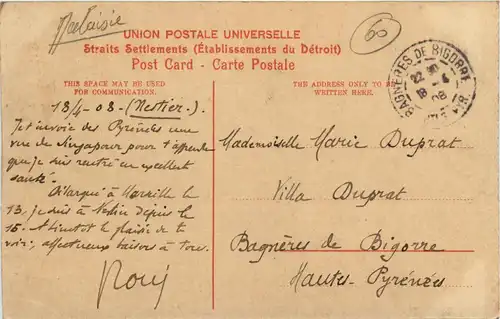 Malaisie
60
UNION POSTALE UNIVERSELLE
Straits Settlements (Établissements du Détroit)
Post Card - Carte Postale
THIS SPACE MAY BE USED
FOR COMMUNICATION.
THE ADDRESS ONLY TO BE
WRITTEN HERE.
BAGNÈRES DE BIGORRE
18 - 4
08
18/4 - 08 - (Nestier.)
Je t'envoie des Pyrénées une
vue de Singapour pour t'apprendre
que je suis rentré en excellent
santé.
Débarqué à Marseille le
13, je suis à Nestier depuis le
15. A bientôt le plaisir de te
voir, affectueux baisers à tous.
Mademoiselle Marie Duprat
Villa Duprat
Bagnères de Bigorre
Hautes-Pyrénées